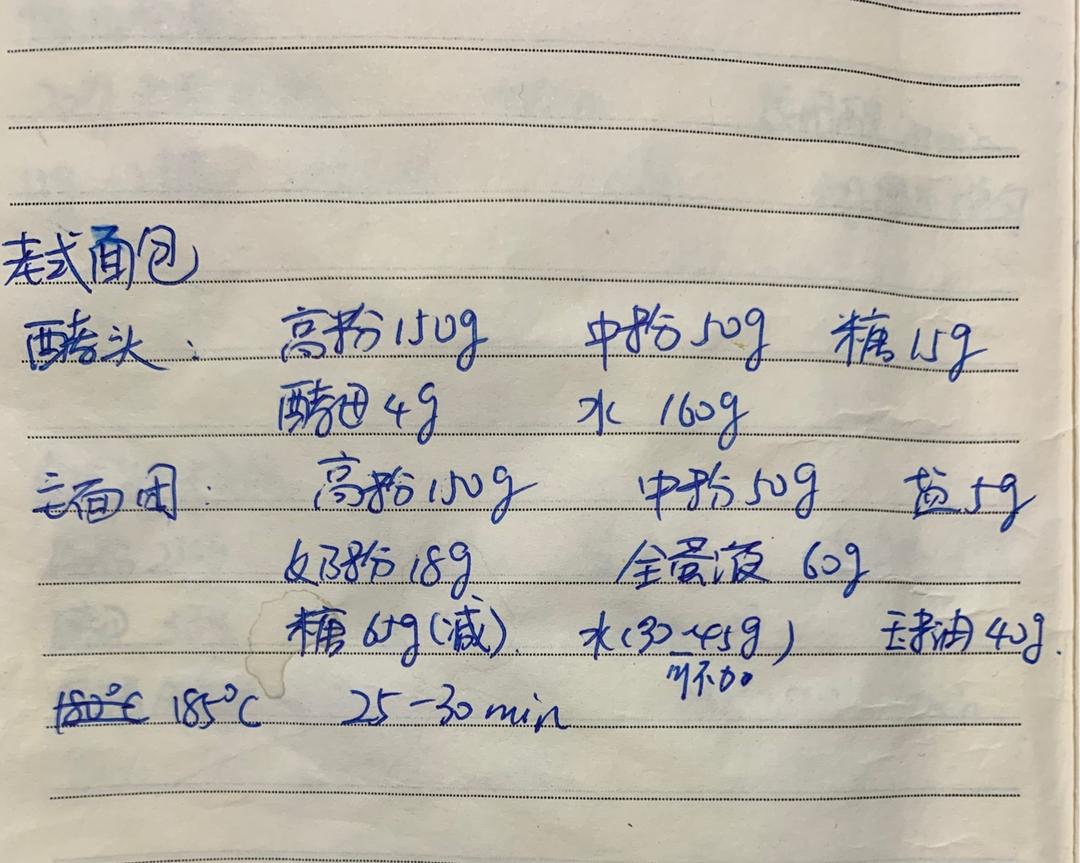 老式面包
酵头： 高粉150g 中粉50g 糖15g
酵母4g 水 160g
主面团： 高粉150g 中粉50g 盐5g
奶粉18g 全蛋液 60g
糖65g(减) 水(30-45g) 玉米油40g.
可不加
180℃ 185℃ 25-30min